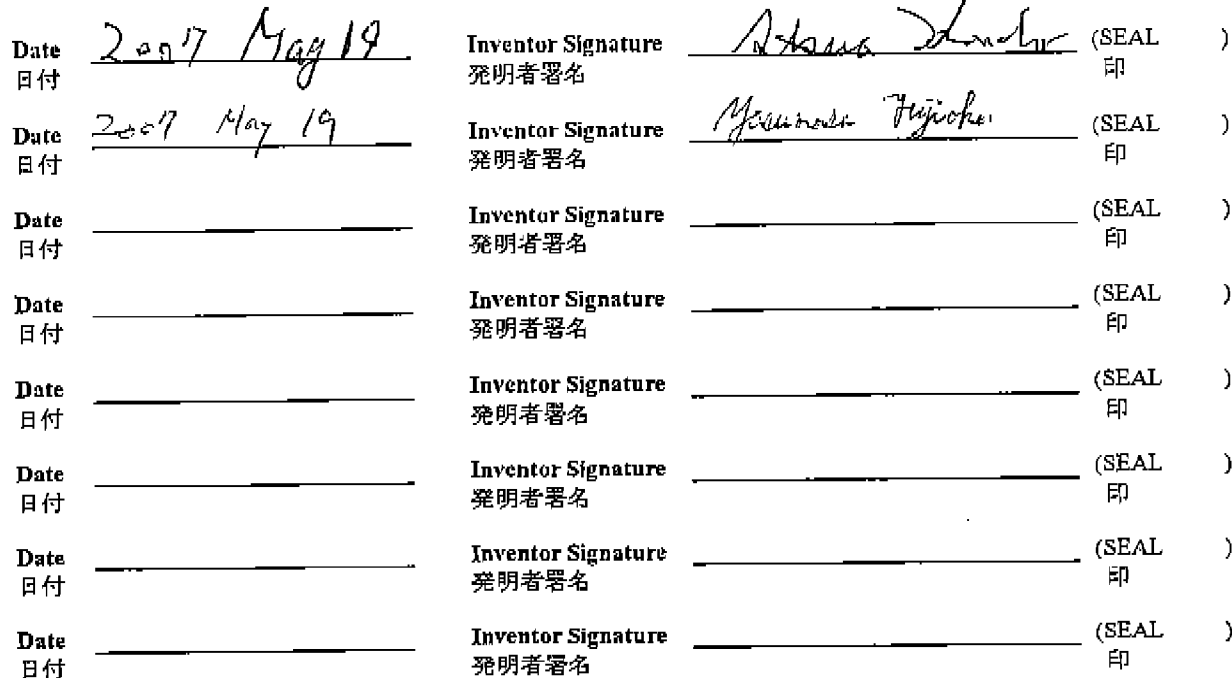 Date 2007 May 19 Inventor Signature (SEAL )
日付 発明者署名 印
Date 2007 May 19 Inventor Signature Fujioka (SEAL )
日付 発明者署名 印
Date Inventor Signature (SEAL )
日付 発明者署名 印
Date Inventor Signature (SEAL )
日付 発明者署名 印
Date Inventor Signature (SEAL )
日付 発明者署名 印
Date Inventor Signature (SEAL )
日付 発明者署名 印
Date Inventor Signature (SEAL )
日付 発明者署名 印
Date Inventor Signature (SEAL )
日付 発明者署名 印